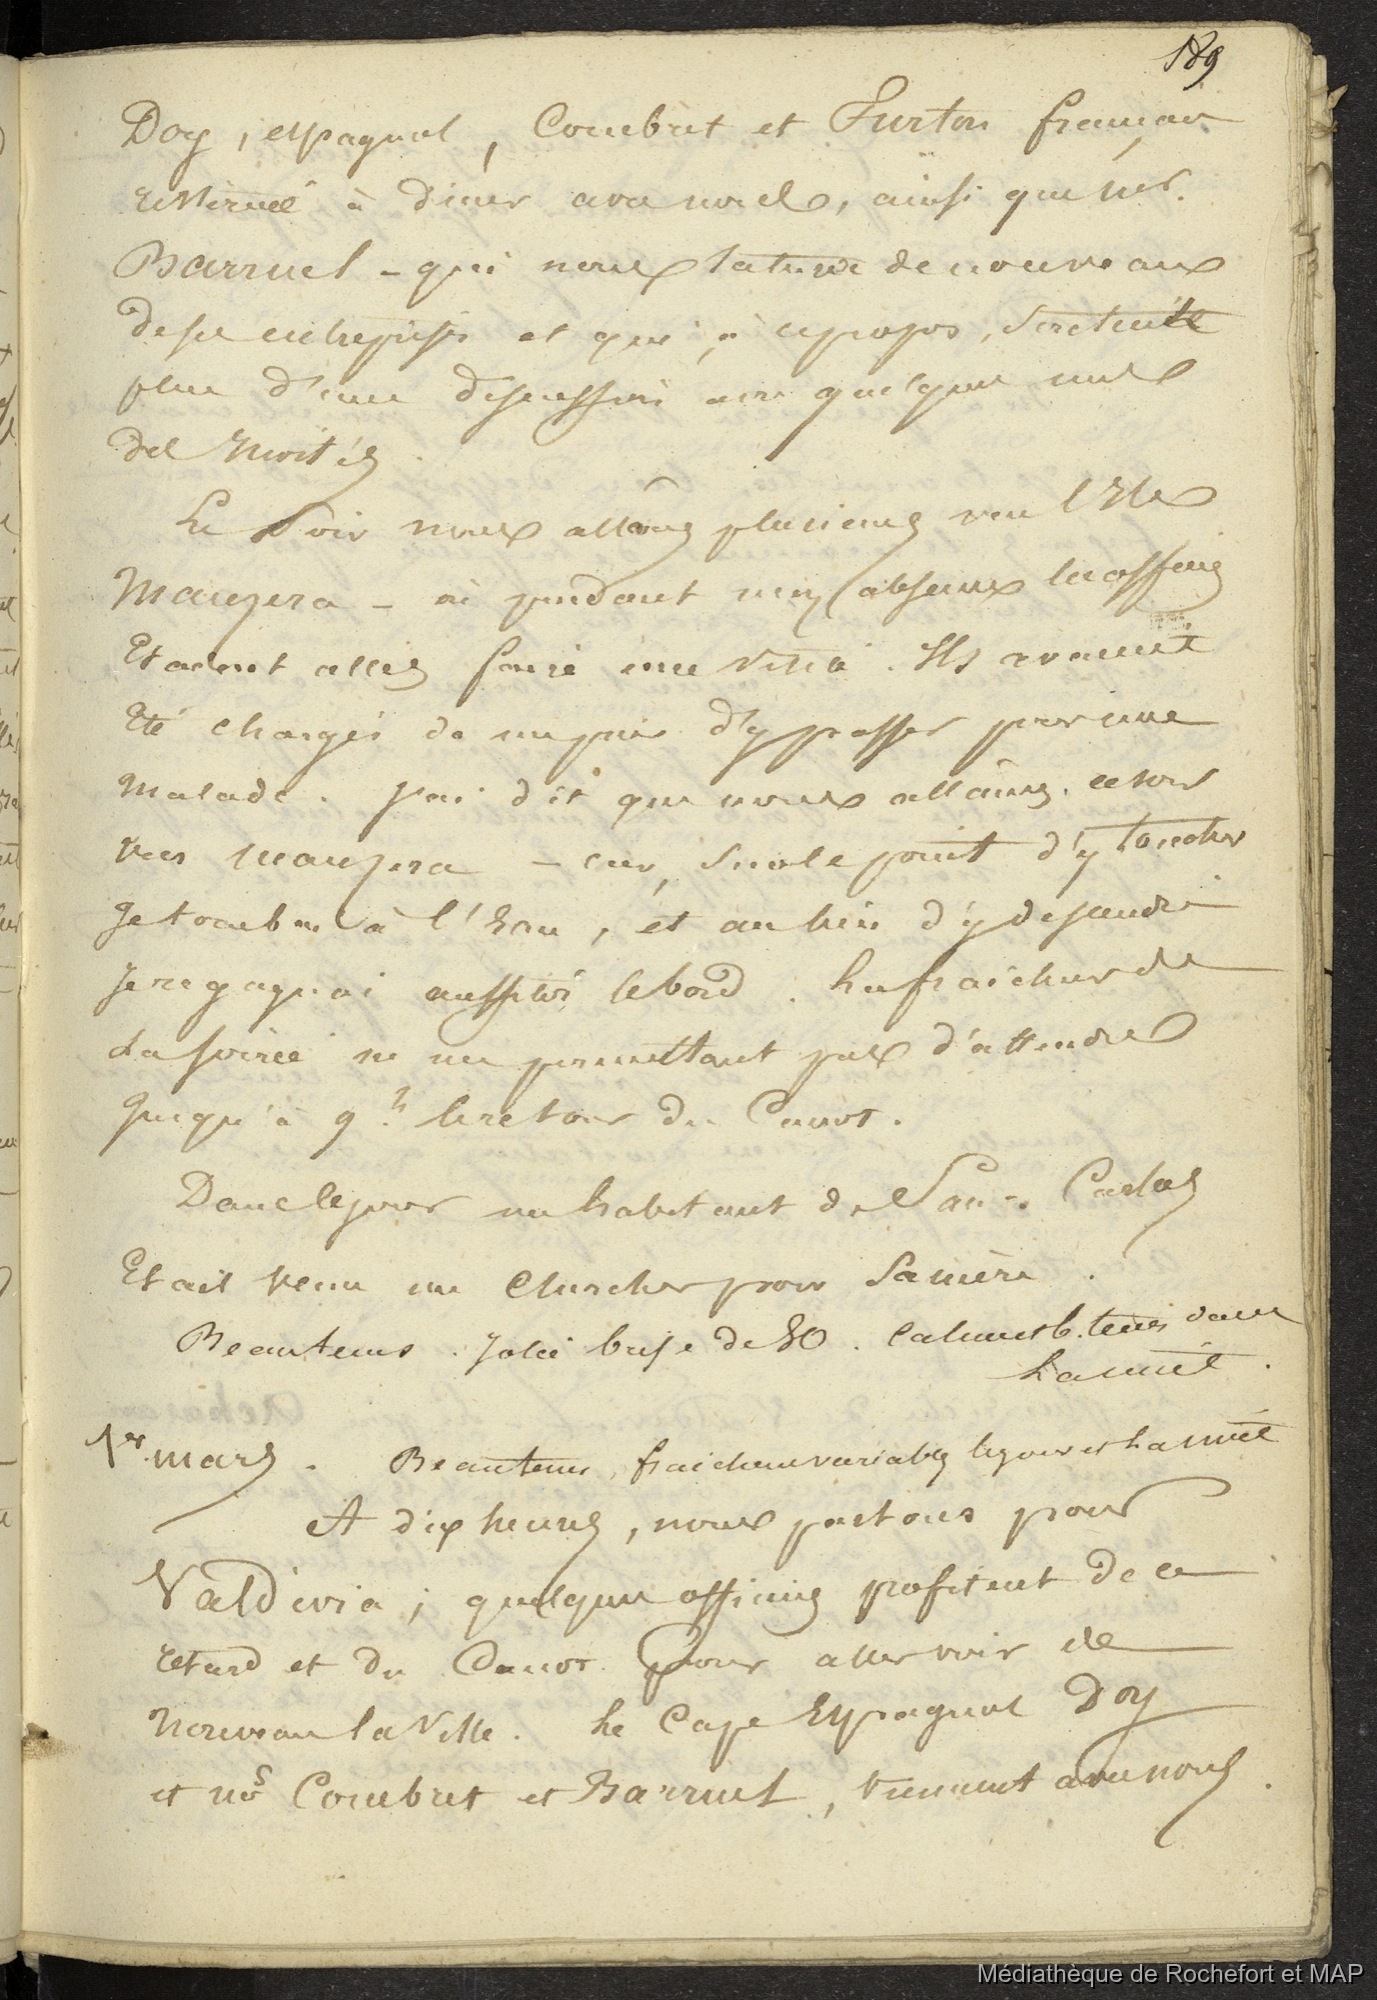 189
Doy, espagnol, Coubret et Furton français
restèrent à diner avec nous, ainsi que mr.
Barruel - qui nous entretint de nouveau
de ses entreprises et qui, à ce propos, soutint
plus d'une discussion avec quelques uns
des invités.
Le soir nous allâmes plusieurs vers l'Isle
Manzera - où pendant mon absence les officiers
Etaient allés faire une visite. Ils avaient
Eté chargés de ma part d'y passer pour une
malade. J'ai dit que nous allâmes ce soir
vers Manzera - car, sur le point d'y toucher
Je tombai à l'Eau, et au lieu d'y descendre
Je regagnai aussitôt le bord. La fraicheur de
La soirée ne me permettant pas d'attendre
Jusqu'à 9.h le retour du Canot.
Dans le jour un habitant de San Carlos
Etait venu me chercher pour sa mère.
Beau tems. Jolie brise de SO. Calme et b. tems dans
la nuit.
1er mars. Beau tems, fraicheurs variables le jour et la nuit
A dix heures, nous partons pour
Valdivia; quelques officiers profitent de ce
retard et du Canot pour aller voir de
Nouveau la Ville. Le Cape Espagnol Doy
et mrs Coubret et Barruel, viennent avec nous.
Médiathèque de Rochefort et MAP